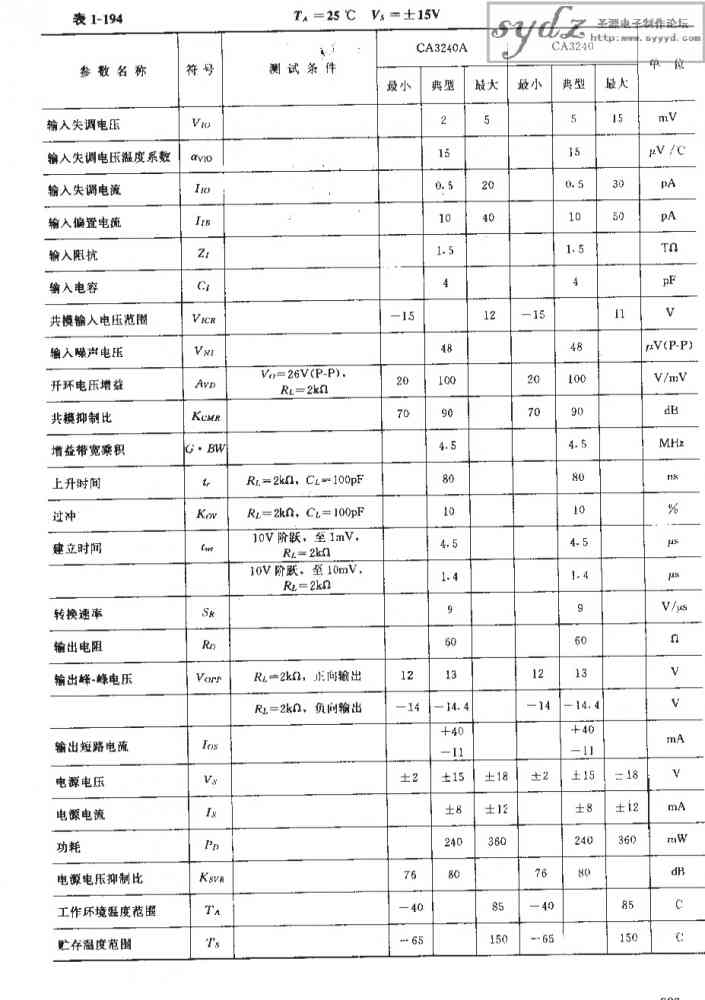 表 1-194 T_A = 25 ℃ V_S = ±15V
sydz 圣源电子制作论坛
http:www.syyyd.com
参数名称 符号 测试条件 CA3240A CA3240 单位
最小 典型 最大 最小 典型 最大
输入失调电压 V_IO 2 5 5 15 mV
输入失调电压温度系数 α_VIO 15 15 μV/℃
输入失调电流 I_IO 0.5 20 0.5 30 pA
输入偏置电流 I_IB 10 40 10 50 pA
输入阻抗 Z_I 1.5 1.5 TΩ
输入电容 C_I 4 4 pF
共模输入电压范围 V_ICR -15 12 -15 11 V
输入噪声电压 V_NI 48 48 μV(P-P)
开环电压增益 A_VD V_O=26V(P-P), R_L=2kΩ 20 100 20 100 V/mV
共模抑制比 K_CMR 70 90 70 90 dB
增益带宽乘积 G·BW 4.5 4.5 MHz
上升时间 t_r R_L=2kΩ, C_L=100pF 80 80 ns
过冲 K_OV R_L=2kΩ, C_L=100pF 10 10 %
建立时间 t_set 10V 阶跃, 至 1mV, R_L=2kΩ 4.5 4.5 μs
10V 阶跃, 至 10mV, R_L=2kΩ 1.4 1.4 μs
转换速率 S_R 9 9 V/μs
输出电阻 R_O 60 60 Ω
输出峰-峰电压 V_OPP R_L=2kΩ, 正向输出 12 13 12 13 V
R_L=2kΩ, 负向输出 -14 -14.4 -14 -14.4 V
输出短路电流 I_OS +40 -11 +40 -11 mA
电源电压 V_S ±2 ±15 ±18 ±2 ±15 ±18 V
电源电流 I_S ±8 ±12 ±8 ±12 mA
功耗 P_D 240 360 240 360 mW
电源电压抑制比 K_SVR 76 80 76 80 dB
工作环境温度范围 T_A -40 85 -40 85 ℃
贮存温度范围 T_S -65 150 -65 150 ℃